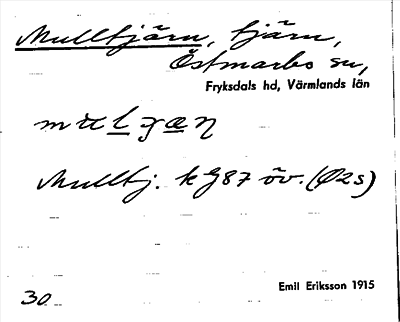 Mulltjärn, tjärn,
Östmarks sn,
Fryksdals hd, Värmlands län
Mulltj. k G87 öv. (Ø2s)
Emil Eriksson 1915
30